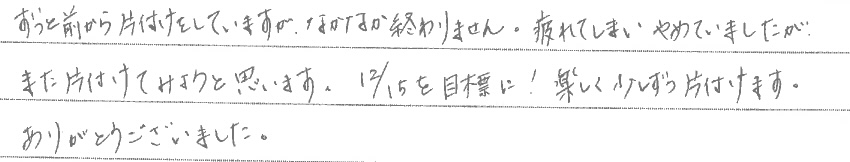 ずっと前から片付けをしていますが、なかなか終わりません。疲れてしまい やめていましたが、
また片付けてみようと思います。12/15を目標に!楽しく少しずつ片付けます。
ありがとうございました。